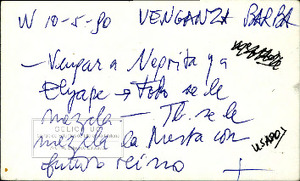 W 10-5-90 VENGANZA BARBA
— Vengar a Negrita y a
→ Foto se le
mezcla — Tb. se le
mezcla la Mesta con
futuro reino
USADO